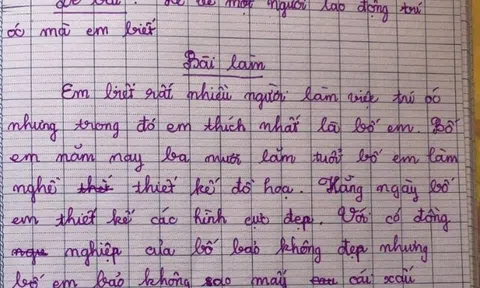 Đề bài : Kể về một người lao động trí
óc mà em biết
Bài làm
Em biết rất nhiều người làm việc trí óc
nhưng trong đó em thích nhất là bố em. Bố
em năm nay ba mươi lăm tuổi bố em làm
nghề thiết kế đồ hoạ. Hằng ngày bố
em thiết kế các hình cụt đẹp. Với cô đồng
nghiệp của bố bảo không đẹp nhưng
bố em bảo không sao mấy cái xấu